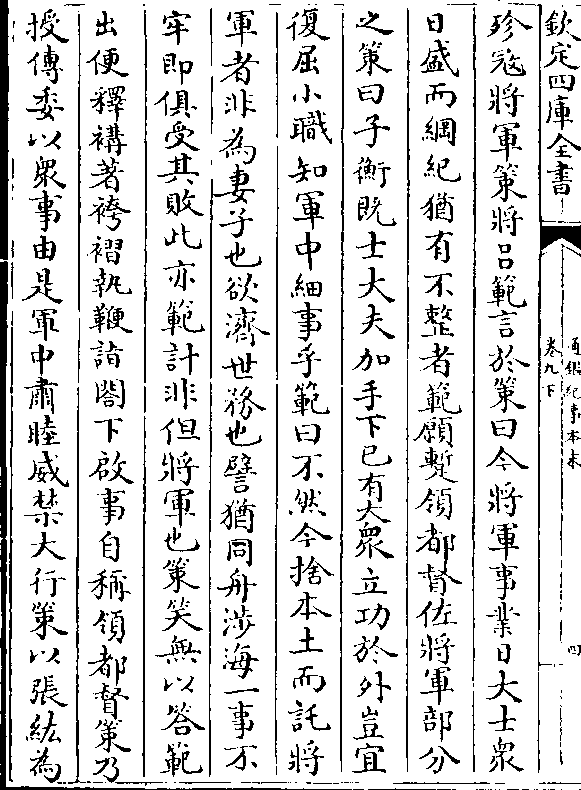 欽定四庫全書
通鑑紀事本末
卷九下
四
殄寇將軍策將呂範言於策曰今將軍事業日大士衆
日盛而綱紀猶有不整者範願蹔領都督佐將軍部分
之策曰子衡既士大夫加手下已有大衆立功於外豈宜
復屈小職知軍中細事乎範曰不然今捨本土而託將
軍者非為妻子也欲濟世務也譬猶同舟涉海一事不
牢即俱受其敗此亦範計非但將軍也策笑無以答範
出便釋褠著袴褶執鞭詣閤下啟事自稱領都督策乃
授傳委以衆事由是軍中肅睦威禁大行策以張紘為